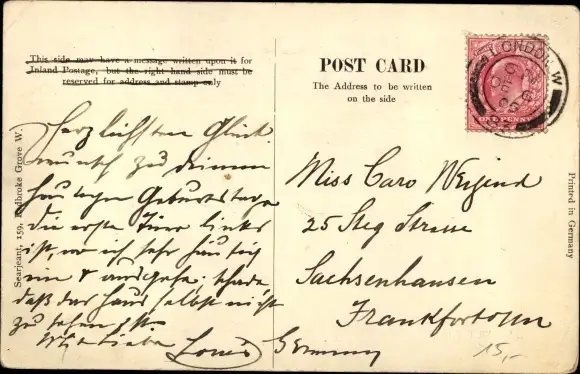 This side may have a message written upon it for
Inland Postage, but the right hand side must be
reserved for address and stamp only
POST CARD
The Address to be written
on the side
LONDON. W
ONE PENNY
Searjeant, 159, Ladbroke Grove W.
Printed in Germany
Herzlichsten Glück
wunsch zu deinem
heutigen Geburtstage
die erste Türe links
ist, wo ich sehr häufig
ein & ausgehe. schade
daß das Haus selbst nicht
zu sehen ist.
Louis
Miss Caro Weigend
25 Steg Strasse
Sachsenhausen
Frankfort
Germany
15,-